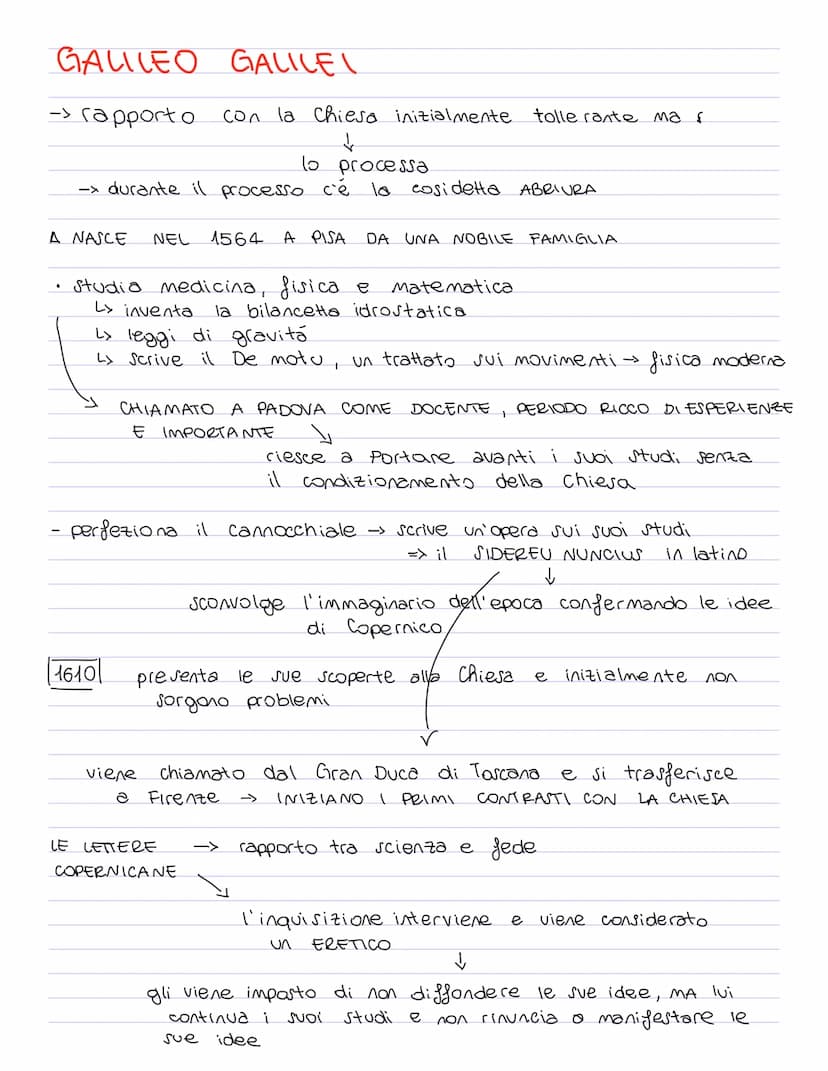 GALILEO GALILEI
-> rapporto con la Chiesa inizialmente tollerante ma
↓
lo processa
-> durante il processo c'è la cosidetta ABRIURA
Δ NASCE NEL 1564 A PISA DA UNA NOBILE FAMIGLIA
• studia medicina, fisica e matematica
↳ inventa la bilancetta idrostatica
↳ leggi di gravità
↳ scrive il De motu, un trattato sui movimenti → fisica moderna
CHIAMATO A PADOVA COME DOCENTE, PERIODO RICCO DI ESPERIENZE
E IMPORTANTE ↘
riesce a portare avanti i suoi studi senza
il condizionamento della Chiesa
- perfeziona il cannocchiale → scrive un'opera sui suoi studi
=> il SIDEREU NUNCIUS in latino
↓
sconvolge l'immaginario dell'epoca confermando le idee
di Copernico
1610 presenta le sue scoperte alla Chiesa e inizialmente non
sorgono problemi
viene chiamato dal Gran Duca di Toscana e si trasferisce
a Firenze → INIZIANO I PRIMI CONTRASTI CON LA CHIESA
LE LETTERE → rapporto tra scienza e fede
COPERNICANE ↘
l'inquisizione interviene e viene considerato
un ERETICO
↓
gli viene imposto di non diffondere le sue idee, MA lui
continua i suoi studi e non rinuncia a manifestare le
sue idee